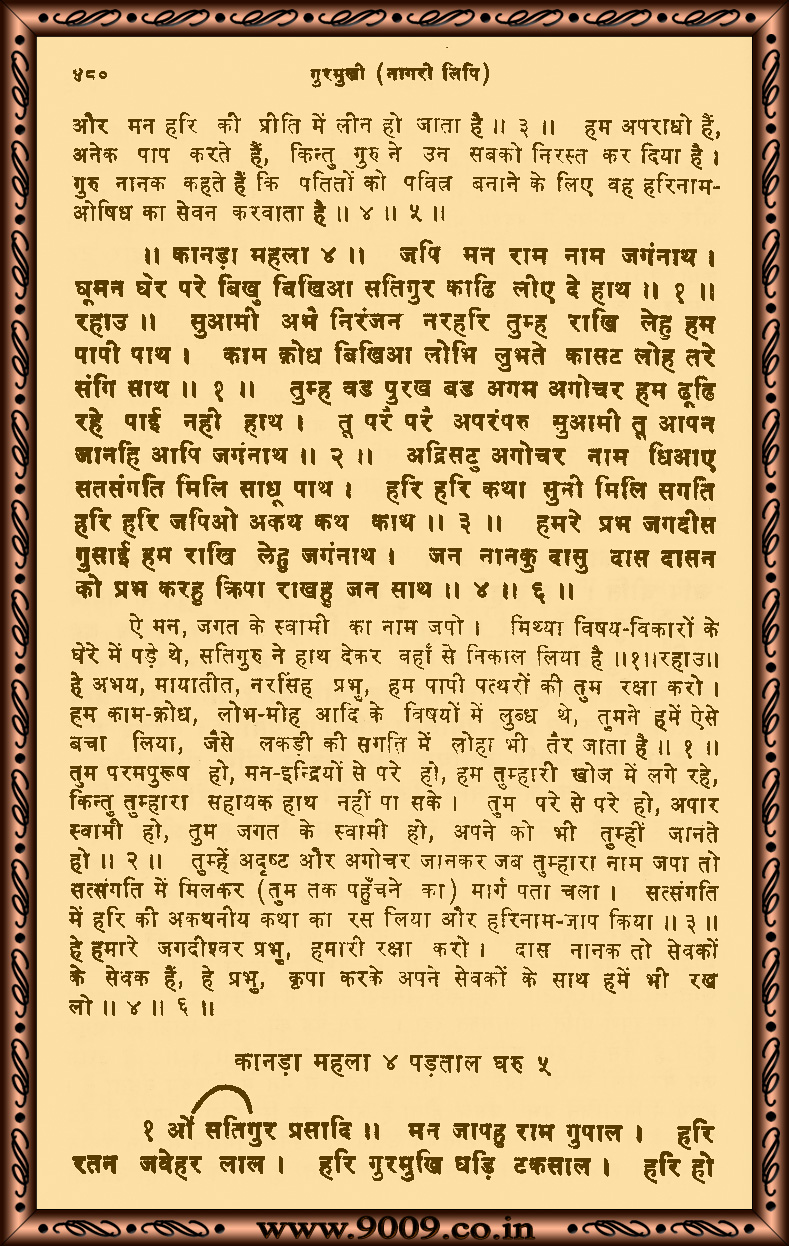 ४८० गुरमुखी (नागरी लिपि)
और मन हरि की प्रीति में लीन हो जाता है ॥ ३ ॥ हम अपराधी हैं,
अनेक पाप करते हैं, किन्तु गुरु ने उन सबको निरस्त कर दिया है ।
गुरु नानक कहते हैं कि पतितों को पवित्र बनाने के लिए वह हरिनाम-
ओषिध का सेवन करवाता है ॥ ४ ॥ ५ ॥
॥ कानड़ा महला ४ ॥ जपि मन राम नाम जगंनाथ ।
घूमन घेर परे बिखु बिखिआ सतिगुर काढि लीए दे हाथ ॥ १ ॥
रहाउ ॥ सुआमी अभै निरंजन नरहरि तुम्ह राखि लेहु हम
पापी पाथ । काम क्रोध बिखिआ लोभि लुभते कासट लोह तरे
संगि साथ ॥ १ ॥ तुम्ह वड पुरख बड अगम अगोचर हम ढूढि
रहे पाई नही हाथ । तू परै परै अपरंपरु सुआमी तू आपन
जानहि आपि जगंनाथ ॥ २ ॥ अद्रिसटु अगोचर नाम धिआए
सतसंगति मिलि साधू पाथ । हरि हरि कथा सुनी मिलि संगति
हरि हरि जपिओ अकथ कथ काथ ॥ ३ ॥ हमरे प्रभ जगदीस
गुसाई हम राखि लेहु जगंनाथ । जन नानकु दासु दास दासन
को प्रभ करहु क्रिपा राखहु जन साथ ॥ ४ ॥ ६ ॥
ऐ मन, जगत के स्वामी का नाम जपो । मिथ्या विषय-विकारों के
घेरे में पड़े थे, सतिगुरु ने हाथ देकर वहाँ से निकाल लिया है ॥१॥रहाउ॥
हे अभय, मायातीत, नरसिंह प्रभु, हम पापी पत्थरों की तुम रक्षा करो ।
हम काम-क्रोध, लोभ-मोह आदि के विषयों में लुब्ध थे, तुमने हमें ऐसे
बचा लिया, जैसे लकड़ी की सगति में लोहा भी तैर जाता है ॥ १ ॥
तुम परमपुरूष हो, मन-इन्द्रियों से परे हो, हम तुम्हारी खोज में लगे रहे,
किन्तु तुम्हारा सहायक हाथ नहीं पा सके । तुम परे से परे हो, अपार
स्वामी हो, तुम जगत के स्वामी हो, अपने को भी तुम्हीं जानते
हो ॥ २ ॥ तुम्हें अदृष्ट और अगोचर जानकर जब तुम्हारा नाम जपा तो
सत्संगति में मिलकर (तुम तक पहुँचने का) मार्ग पता चला । सत्संगति
में हरि की अकथनीय कथा का रस लिया और हरिनाम-जाप किया ॥ ३ ॥
हे हमारे जगदीश्वर प्रभु, हमारी रक्षा करो । दास नानक तो सेवकों
के सेवक हैं, हे प्रभु, कृपा करके अपने सेवकों के साथ हमें भी रख
लो ॥ ४ ॥ ६ ॥
कानड़ा महला ४ पड़ताल घरु ५
१ ओं सतिगुर प्रसादि ॥ मन जापहु राम गुपाल । हरि
रतन जवेहर लाल । हरि गुरमुखि घड़ि टकसाल । हरि हो
www.9009.co.in